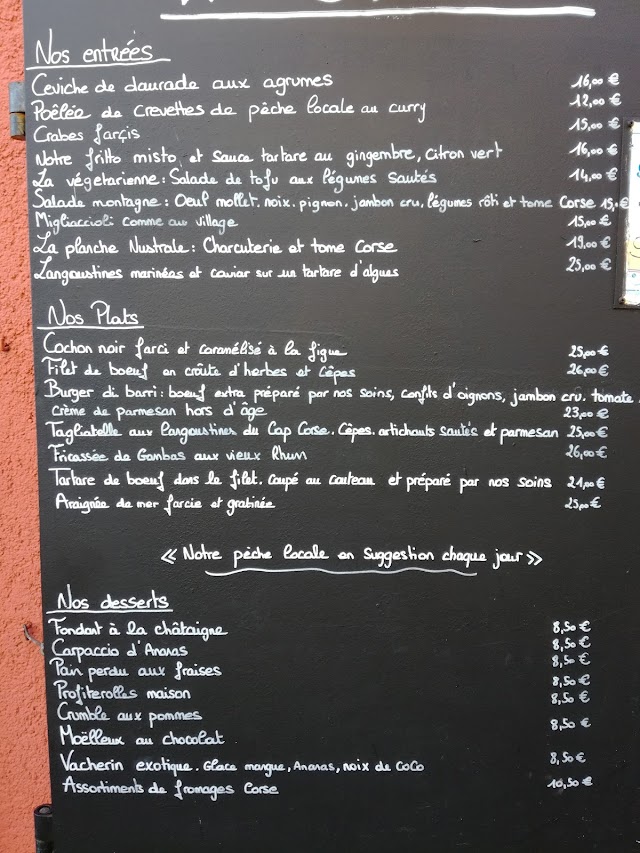 Nos entrées
Ceviche de daurade aux agrumes 16,00 €
Poêlée de crevettes de pêche locale au curry 12,00 €
Crabes farçis 15,00 €
Notre fritto misto et sauce tartare au gingembre, citron vert 16,00 €
La végetarienne : Salade de tofu aux légumes sautés 14,00 €
Salade montagne : Oeuf mollet, noix, pignon, jambon cru, légumes rôti et tome Corse 15,00 €
Migliaccioli comme au village 15,00 €
La planche Nustrale : Charcuterie et tome Corse 19,00 €
Langoustines marinées et caviar sur un tartare d'algues 25,00 €
Nos Plats
Cochon noir farci et caramélisé à la figue 25,00 €
Filet de boeuf en croûte d'herbes et Cêpes 26,00 €
Burger di barri : boeuf extra préparé par nos soins, confits d'oignons, jambon cru, tomate
crème de parmesan hors d'âge 23,00 €
Tagliatelle aux langoustines du Cap Corse, Cêpes, artichauts sautés et parmesan 25,00 €
Fricassée de Gambas aux vieux Rhum 26,00 €
Tartare de boeuf dans le filet, coupé au couteau et préparé par nos soins 21,00 €
Araignée de mer farcie et gratinée 25,00 €
« Notre pêche locale en suggestion chaque jour »
Nos desserts
Fondant à la châtaigne 8,50 €
Carpaccio d'Ananas 8,50 €
Pain perdu aux fraises 8,50 €
Profiterolles maison 8,50 €
Crumble aux pommes 8,50 €
Moëlleux au chocolat 8,50 €
Vacherin exotique. Glace mangue, Ananas, noix de CoCo 8,50 €
Assortiments de fromages Corse 10,50 €